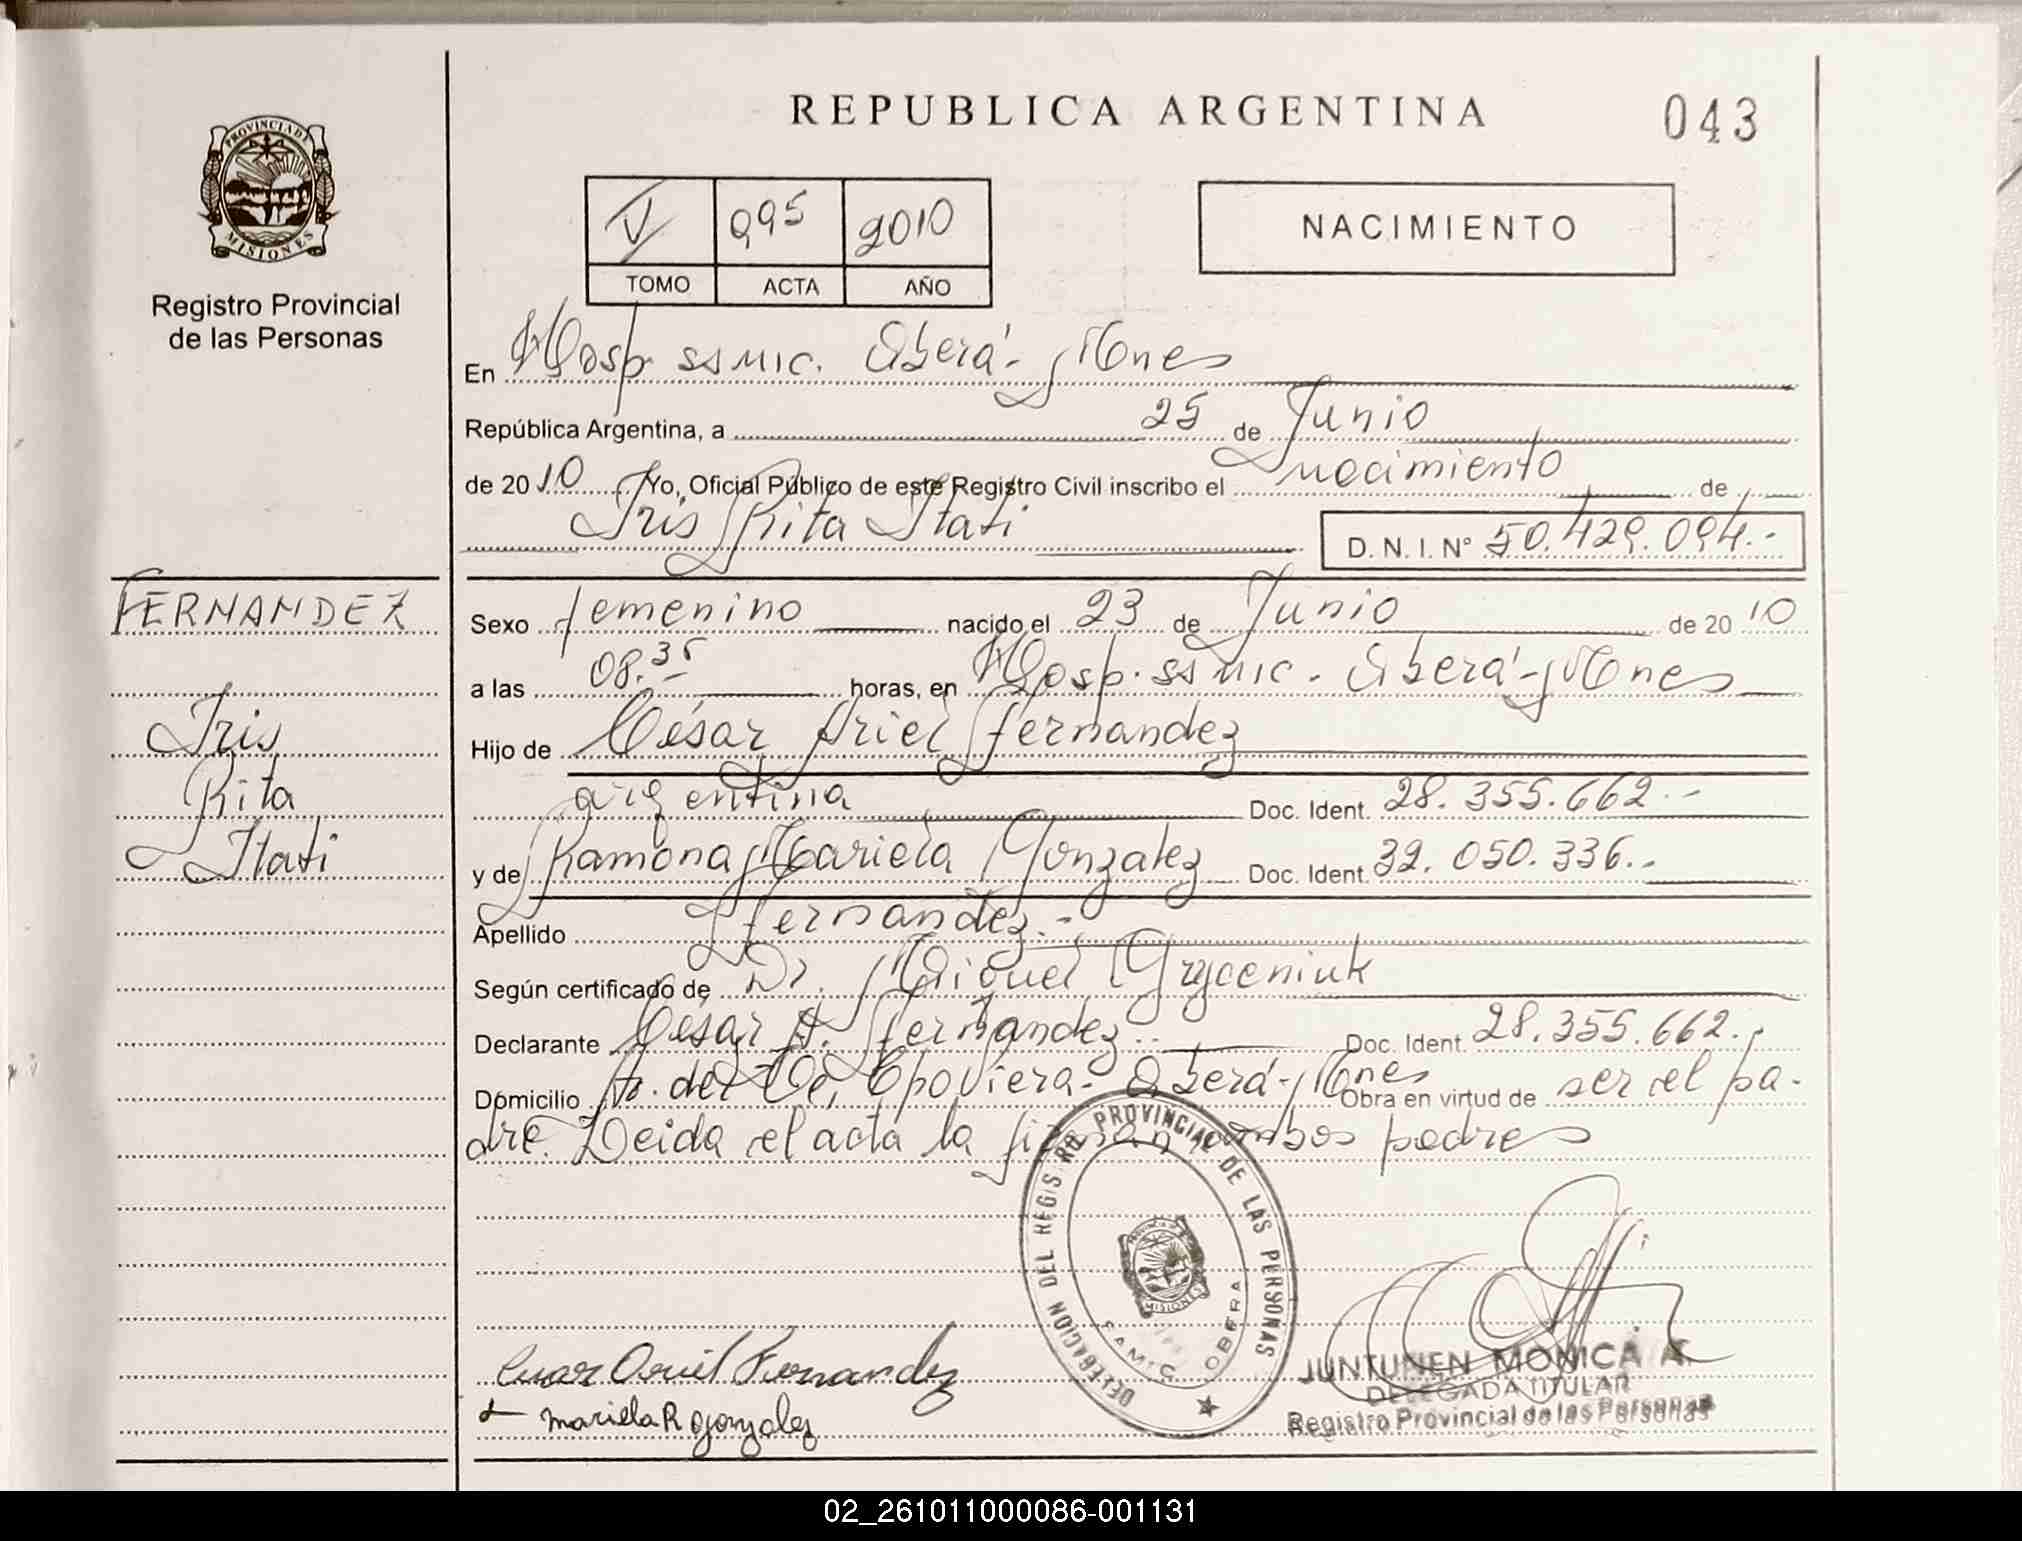 REPUBLICA ARGENTINA
043
PROVINCIA DE
MISIONES
Registro Provincial
de las Personas
V 995 2010
TOMO ACTA AÑO
NACIMIENTO
En Hosp. SSMIC. Oberá - Mnes
República Argentina, a 25 de Junio
de 2010 Yo, Oficial Público de este Registro Civil inscribo el nacimiento de
Iris Rita Itati
D. N. I. N° 50.429.094.-
FERNANDEZ
Iris
Rita
Itati
Sexo femenino nacido el 23 de Junio de 2010
a las 08.35 horas, en Hosp. SSMIC - Oberá - Mnes
Hijo de César Ariel Fernandez
argentina Doc. Ident. 28.355.662.-
y de Ramona Mariela Gonzalez Doc. Ident. 32.050.336.-
Apellido Fernandez.-
Según certificado de Dr. Miguel Gryceniuk
Declarante César A. Fernandez.- Doc. Ident. 28.355.662.-
Domicilio Oberá - Mnes Obra en virtud de ser el pa-
dre. Leida el acta la firman ambos padres
DELEGACION DEL REGISTRO PROVINCIAL DE LAS PERSONAS
MISIONES
SAMIC OBERA
Cesar Ariel Fernandez
Mariela R Gonzalez
JUNTUNEN MONICA A.
DELEGADA TITULAR
Registro Provincial de las Personas
02_261011000086-001131